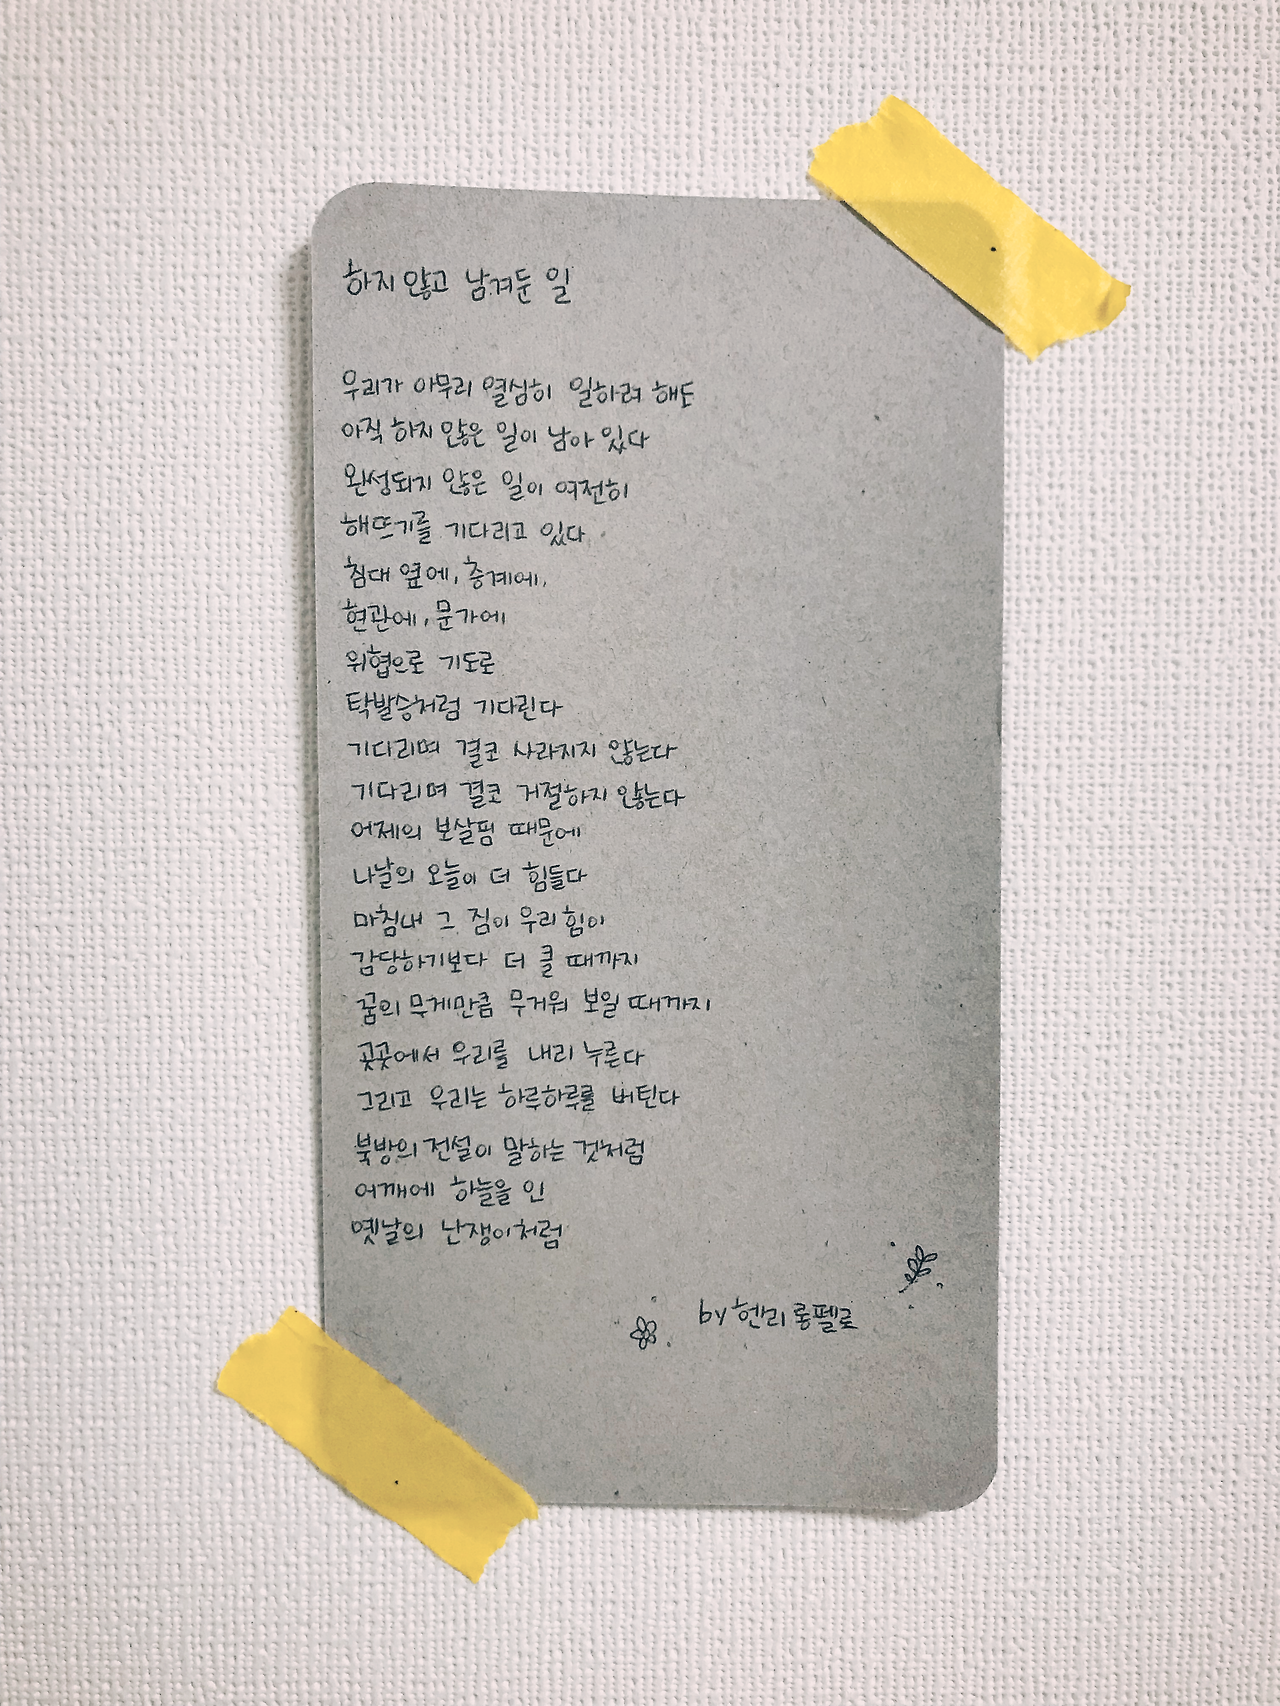 하지 않고 남겨둔 일
우리가 아무리 열심히 일하려 해도
아직 하지 않은 일이 남아 있다
완성되지 않은 일이 여전히
해뜨기를 기다리고 있다
침대 옆에, 층계에,
현관에, 문가에
위협으로 기도로
탁발승처럼 기다린다
기다리며 결코 사라지지 않는다
기다리며 결코 거절하지 않는다
어제의 보살핌 때문에
나날의 오늘이 더 힘들다
마침내 그 짐이 우리 힘이
감당하기보다 더 클 때까지
꿈의 무게만큼 무거워 보일 때까지
곳곳에서 우리를 내리 누른다
그리고 우리는 하루하루를 버틴다
북방의 전설이 말하는 것처럼
어깨에 하늘을 인
옛날의 난쟁이처럼
by 헨리 롱펠로